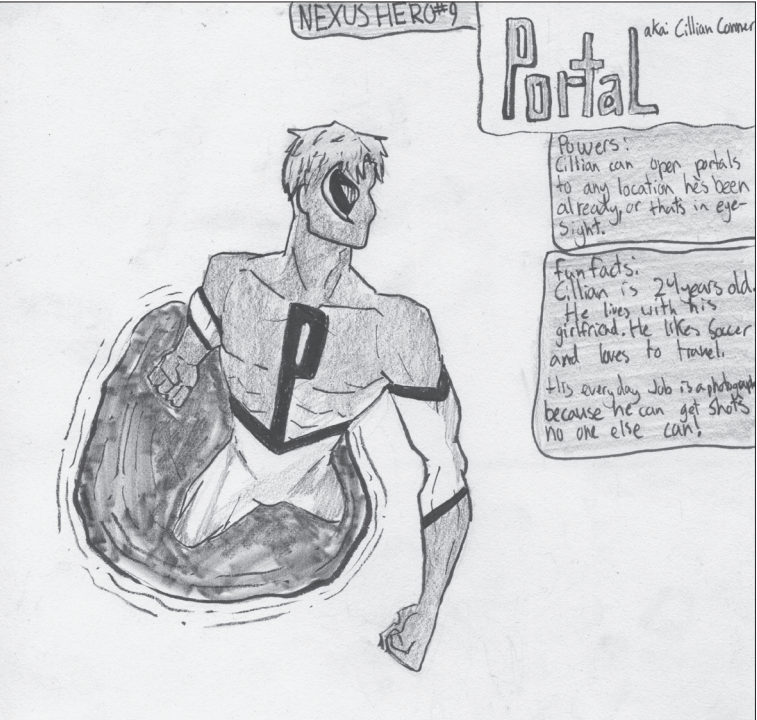 NEXUS HERO#9
Portal
aka: Cillian Conner
Powers:
Cillian can open portals
to any location he's been
already, or that's in eye-
sight.
fun facts:
Cillian is 24 years old.
He lives with his
girlfriend. He likes Soccer
and loves to travel.
His every day Job is a photograph
because he can get shots
no one else can!
P